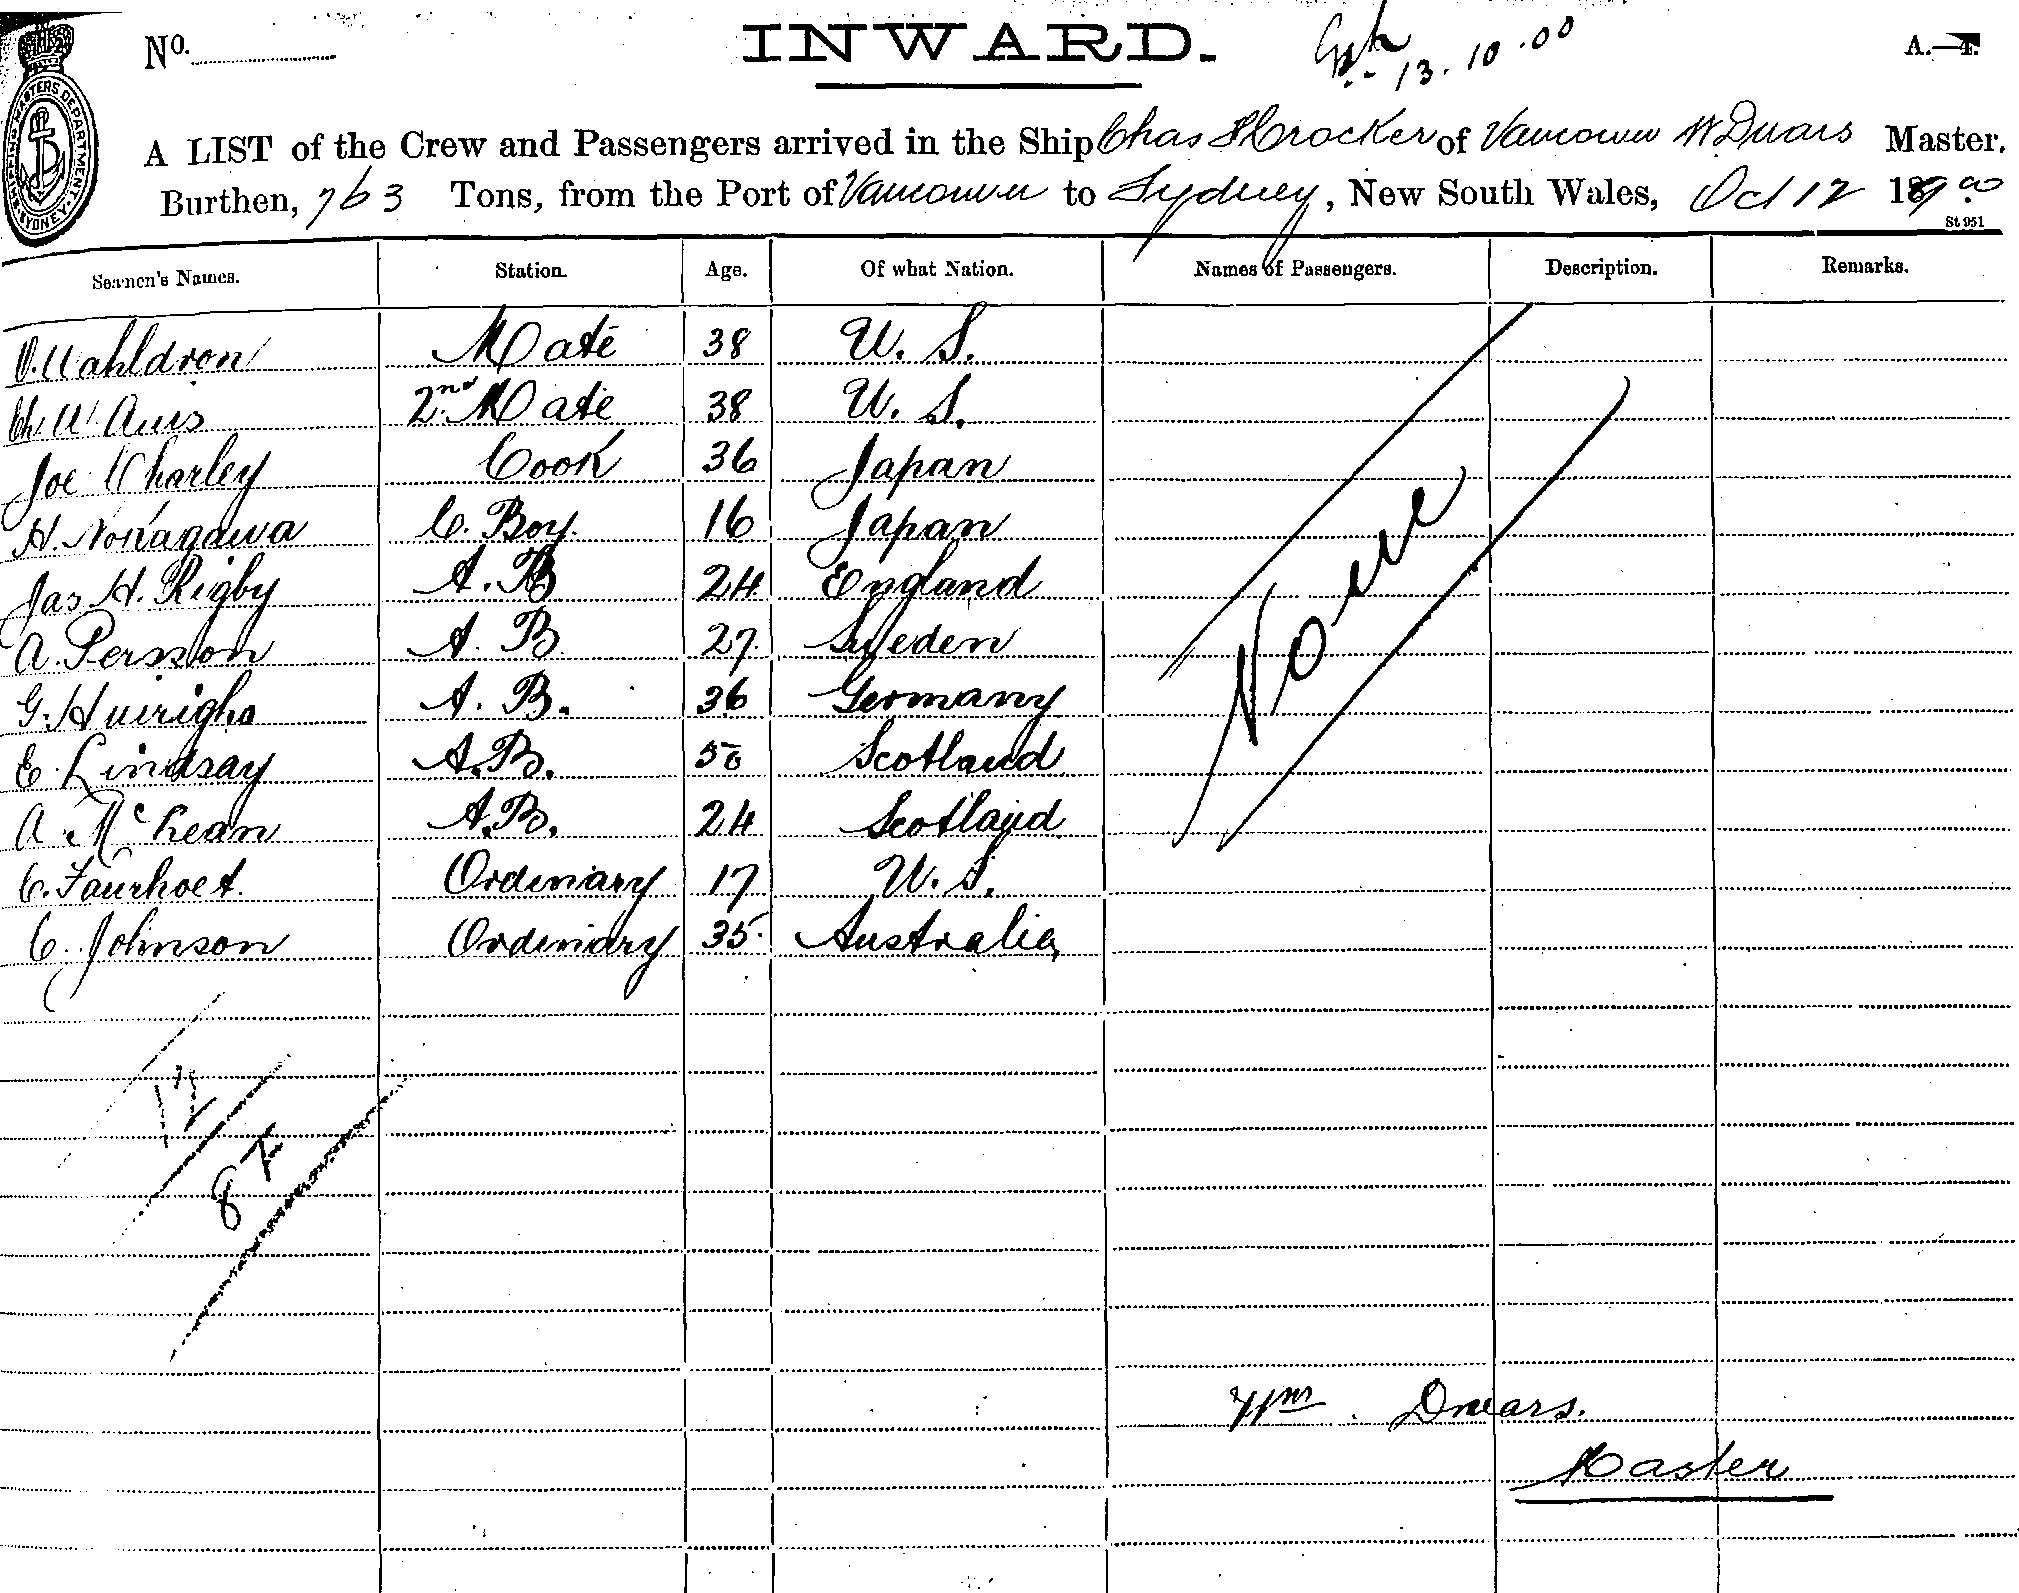 No. INWARD. 13.10.00 A.—4.
SHIPPING MASTERS DEPARTMENT SYDNEY
A LIST of the Crew and Passengers arrived in the Ship Chas Crocker of Vancouver W. Dwars Master,
Burthen, 763 Tons, from the Port of Vancouver to Sydney, New South Wales, Oct 12 1900
St 951
Seamen's Names. Station. Age. Of what Nation. Names of Passengers. Description. Remarks.
O. Wahldron Mate 38 U. S.
Ch W 2nd Mate 38 U. S.
Joe Charley Cook 36 Japan
H. Nonagawa C. Boy. 16 Japan
Jas H. Rigby A. B 24 England
A. Persson A. B 27 Sweden
G. A. B. 36 Germany
E. Lindsay A.B. 50 Scotland
A. McLean A.B. 24 Scotland
C. Faurhoet. Ordinary 17 U. S.
C. Johnson Ordinary 35 Australia
None
12
87
Wm. Dwars.
Master